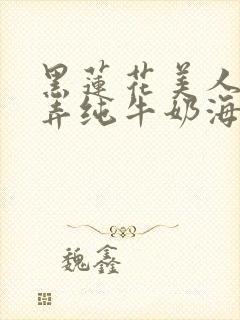 黑蓮花美人
弄纯牛奶海
魏鑫